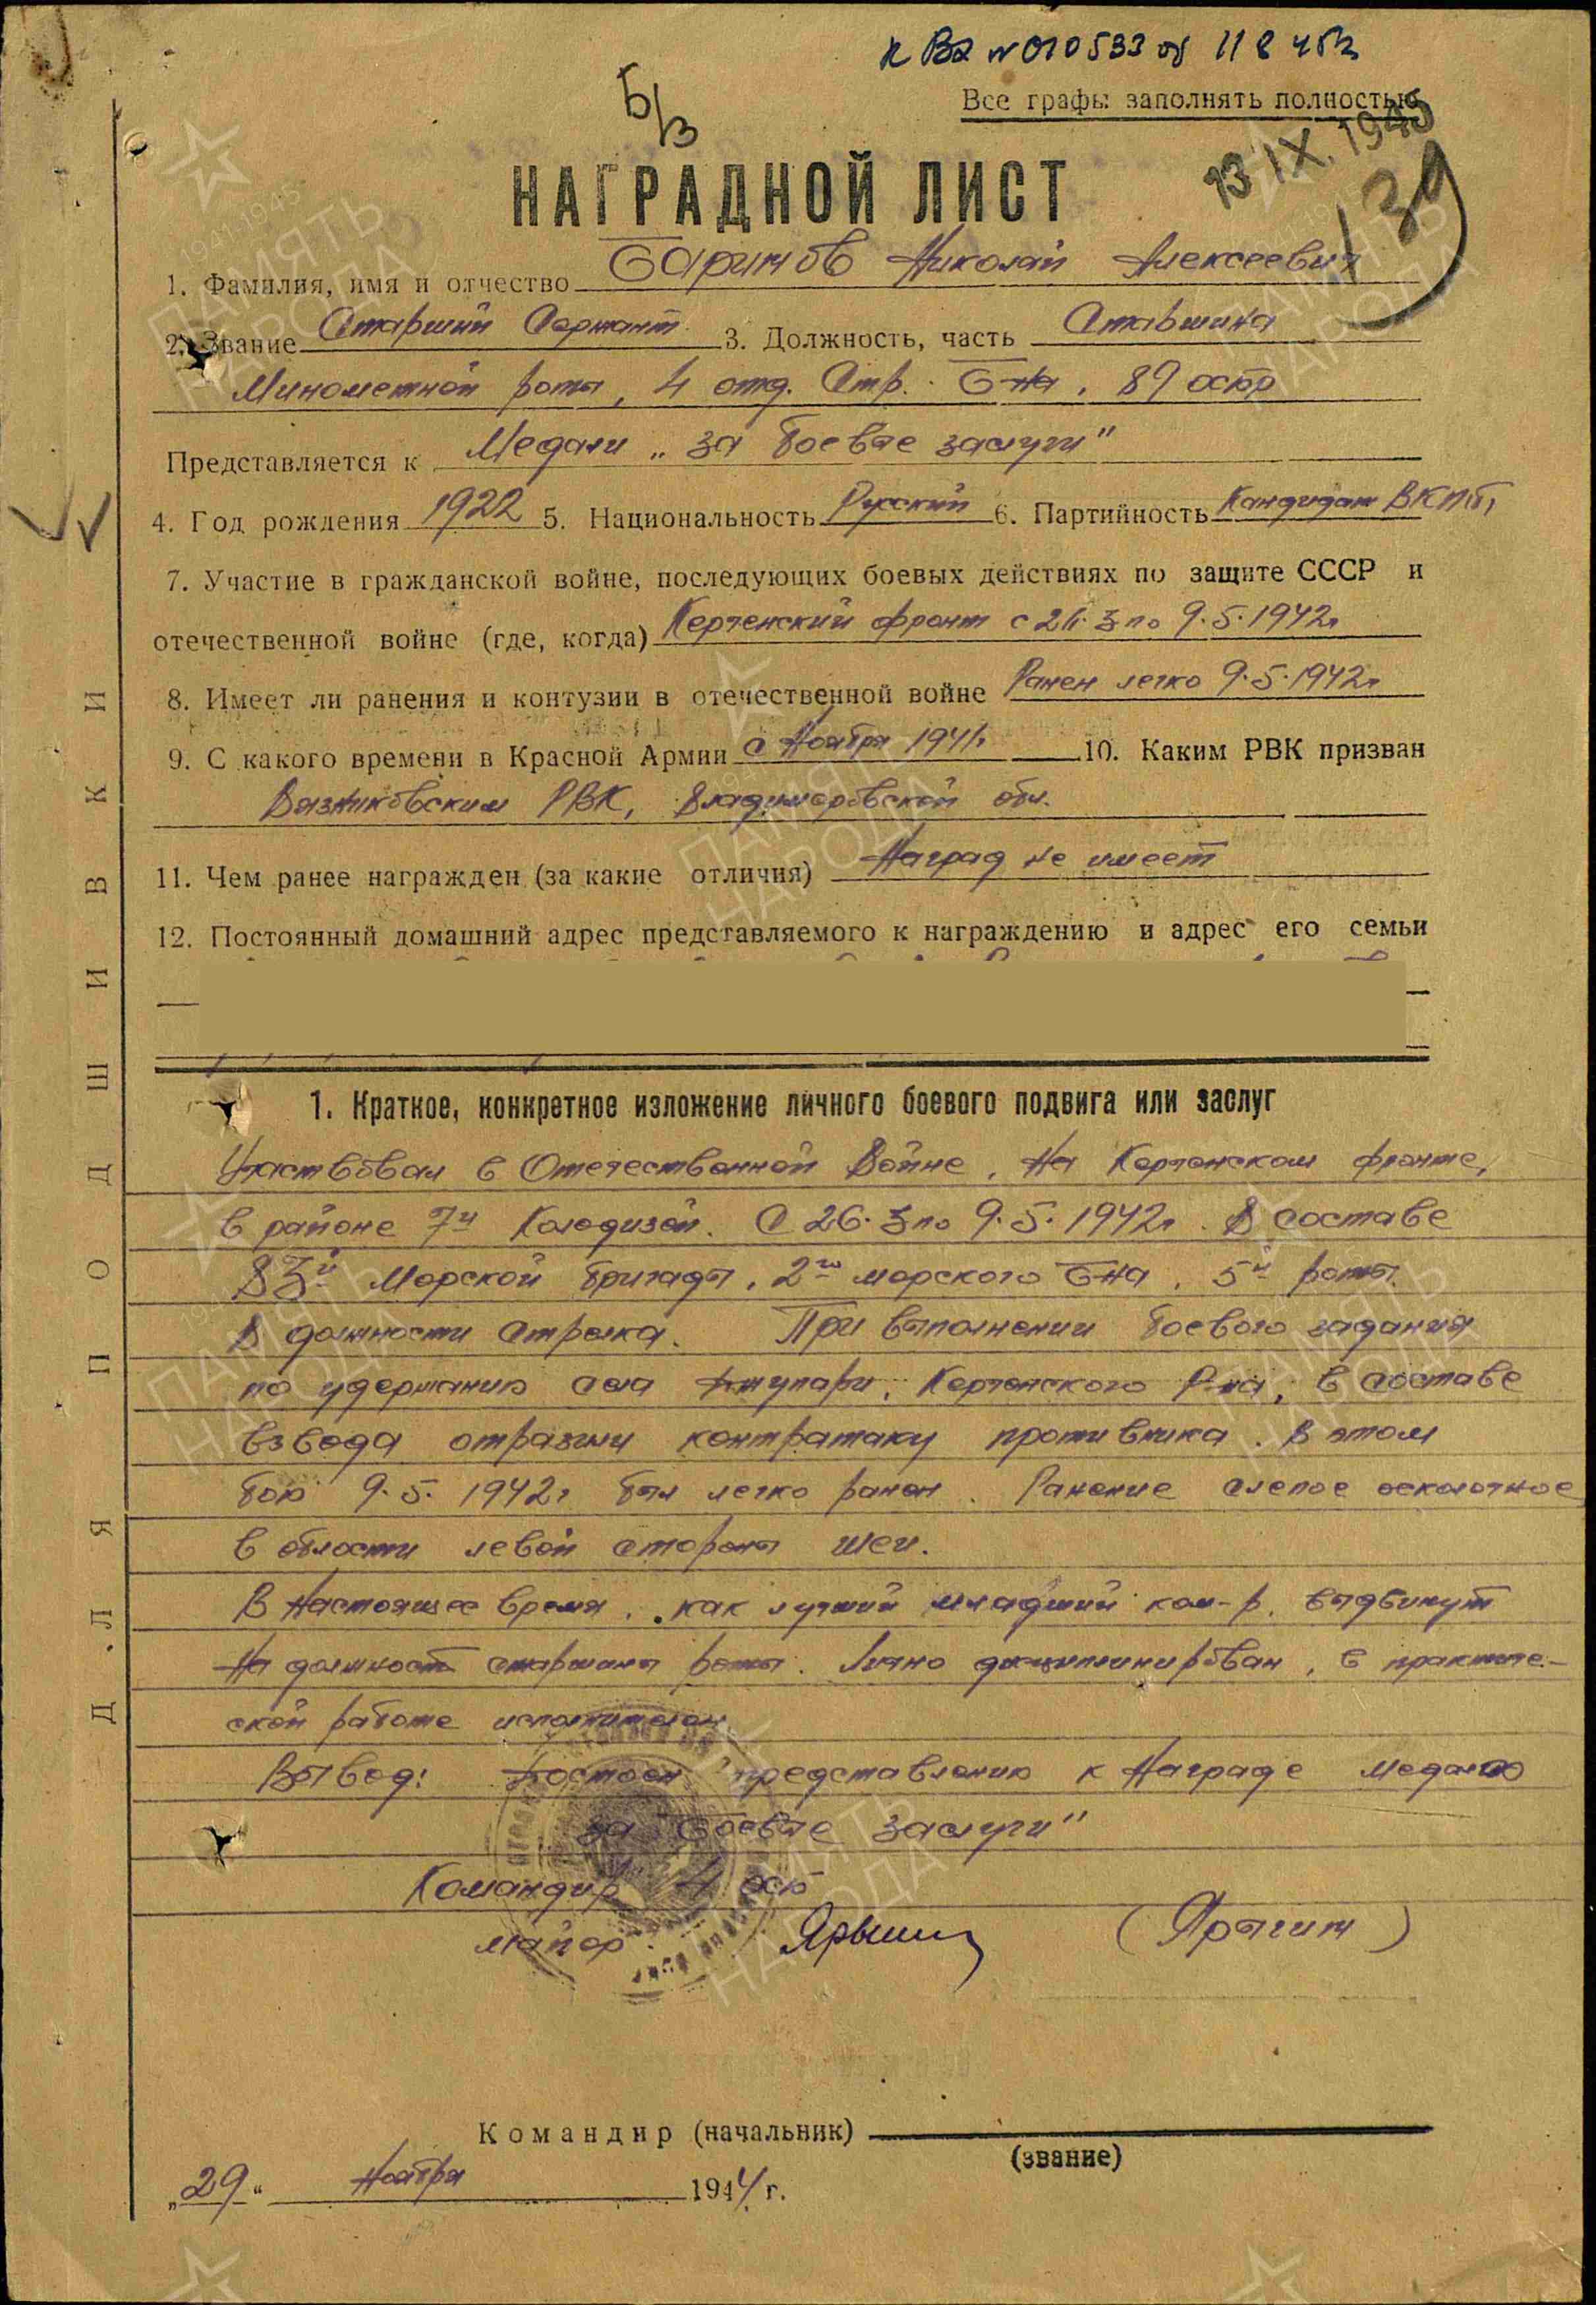 к Вх №010533 от 11 8 45г
Б/З
Все графы заполнять полностью
13 IX. 1945
139
НАГРАДНОЙ ЛИСТ
1. Фамилия, имя и отчество Баринов Николай Алексеевич
2. Звание Старший Сержант 3. Должность, часть Старшина
Минометной роты, 4 отд. Стр. Б-на, 89 осбр
Представляется к Медали „за боевые заслуги"
4. Год рождения 1922 5. Национальность Русский 6. Партийность Кандидат ВКП(б)
7. Участие в гражданской войне, последующих боевых действиях по защите СССР и
отечественной войне (где, когда) Керченский фронт с 26.3 по 9.5.1942г
8. Имеет ли ранения и контузии в отечественной войне Ранен легко 9.5.1942г
9. С какого времени в Красной Армии с Ноября 1941г 10. Каким РВК призван
Вязниковским РВК, Владимировской обл.
11. Чем ранее награжден (за какие отличия) Наград не имеет
12. Постоянный домашний адрес представляемого к награждению и адрес его семьи
1. Краткое, конкретное изложение личного боевого подвига или заслуг
Участвовал в Отечественной Войне, На Керченском фронте,
в районе 7и Колодизей. С 26.3 по 9.5.1942г. В составе
83й Морской бригады, 2го морского Б-на, 5й роты.
В должности стрелка. При выполнении боевого задания
по удержанию села Керченского Р-на, в составе
взвода отразили контратаку противника. В этом
бою 9.5.1942г был легко ранен. Ранение слепое осколочное
в области левой стороны шеи.
В Настоящее время, как лучший младший ком-р, выдвинут
На должность старшины роты. Лично дисциплинирован, в практиче-
ской работе исполнителен.
Вывод: Достоен представлению к Награде медалью
за боевые заслуги"
Командир 4 осб
майор Ярыгин (Ярыгин)
Командир (начальник)
(звание)
„29" Ноября 1944 г.
ДЛЯ ПОДШИВКИ
ПАМЯТЬ НАРОДА
1941-1945